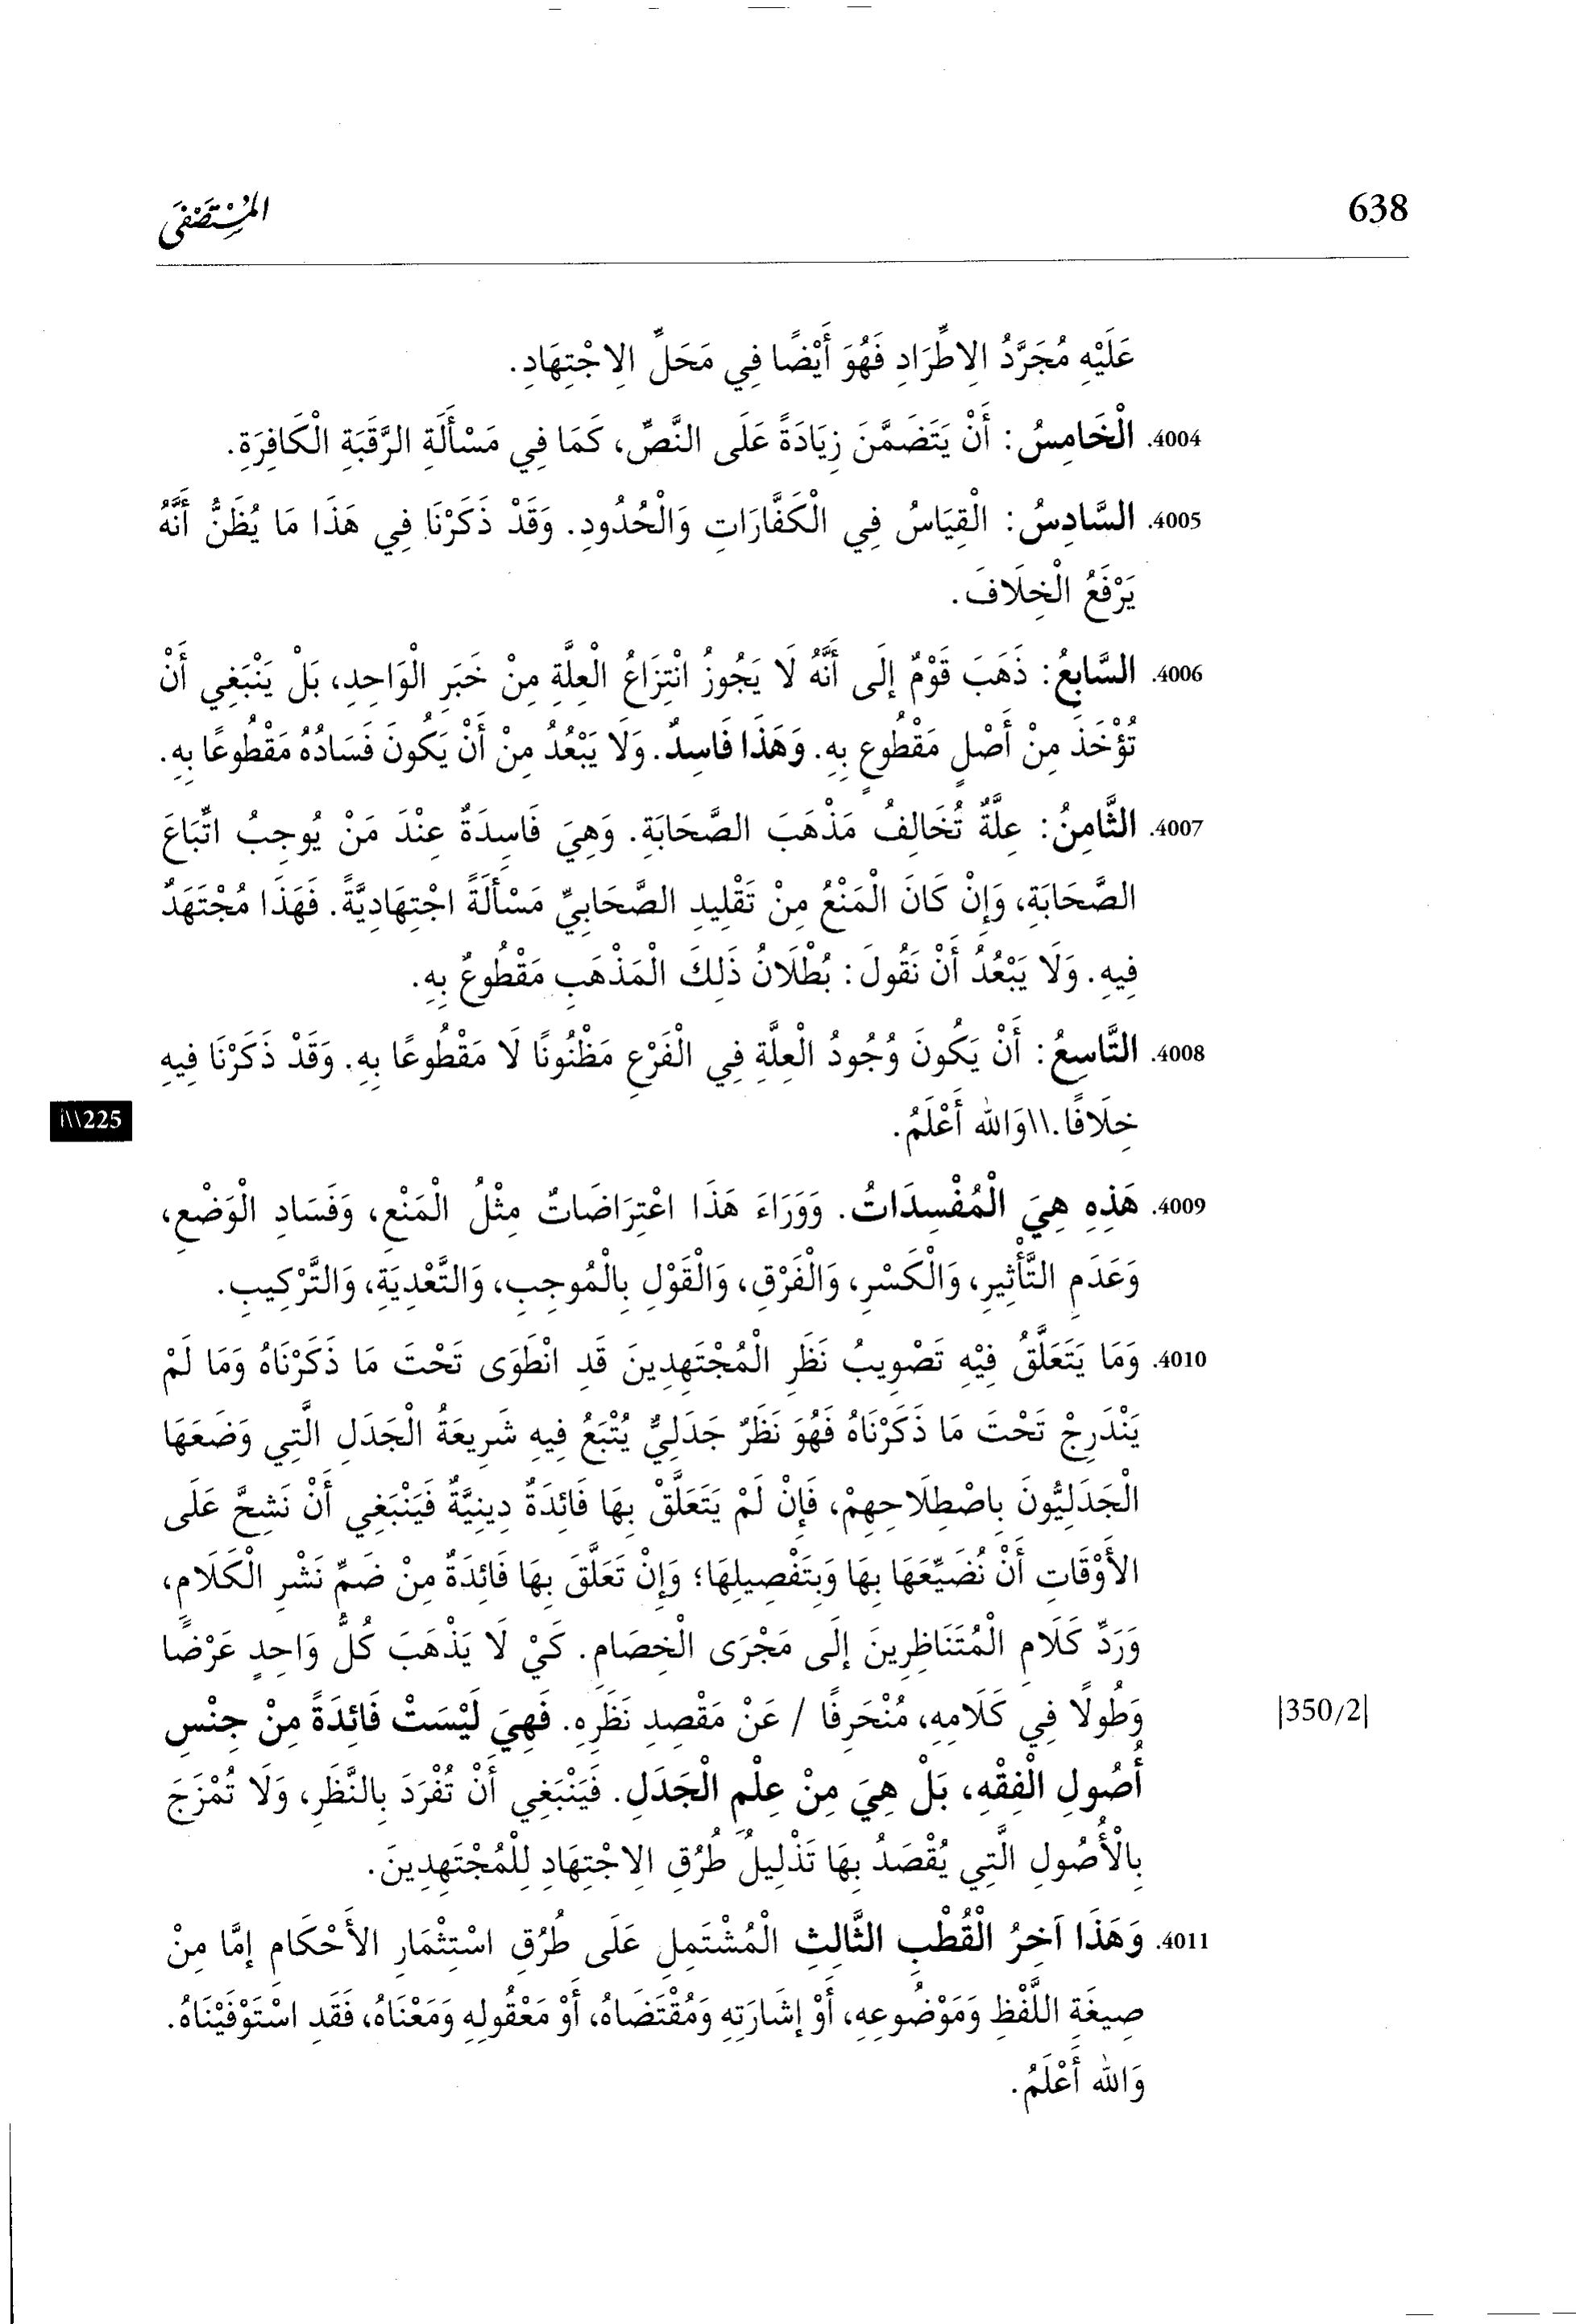 638
المُسْتَصْفَى
عَلَيْهِ مُجَرَّدُ الِاطِّرَادِ فَهُوَ أَيْضًا فِي مَحَلِّ الِاجْتِهَادِ.
4004. الْخَامِسُ: أَنْ يَتَضَمَّنَ زِيَادَةً عَلَى النَّصِّ، كَمَا فِي مَسْأَلَةِ الرَّقَبَةِ الْكَافِرَةِ.
4005. السَّادِسُ: الْقِيَاسُ فِي الْكَفَّارَاتِ وَالْحُدُودِ. وَقَدْ ذَكَرْنَا فِي هَذَا مَا يُظَنُّ أَنَّهُ
يَرْفَعُ الْخِلَافَ.
4006. السَّابِعُ: ذَهَبَ قَوْمٌ إِلَى أَنَّهُ لَا يَجُوزُ انْتِزَاعُ الْعِلَّةِ مِنْ خَبَرِ الْوَاحِدِ، بَلْ يَنْبَغِي أَنْ
تُؤْخَذَ مِنْ أَصْلٍ مَقْطُوعٍ بِهِ. وَهَذَا فَاسِدٌ. وَلَا يَبْعُدُ مِنْ أَنْ يَكُونَ فَسَادُهُ مَقْطُوعًا بِهِ.
4007. الثَّامِنُ: عِلَّةٌ تُخَالِفُ مَذْهَبَ الصَّحَابَةِ. وَهِيَ فَاسِدَةٌ عِنْدَ مَنْ يُوجِبُ اتِّبَاعَ
الصَّحَابَةِ، وَإِنْ كَانَ الْمَنْعُ مِنْ تَقْلِيدِ الصَّحَابِيِّ مَسْأَلَةً اجْتِهَادِيَّةً. فَهَذَا مُجْتَهَدٌ
فِيهِ. وَلَا يَبْعُدُ أَنْ نَقُولَ: بُطْلَانُ ذَلِكَ الْمَذْهَبِ مَقْطُوعٌ بِهِ.
4008. التَّاسِعُ: أَنْ يَكُونَ وُجُودُ الْعِلَّةِ فِي الْفَرْعِ مَظْنُونًا لَا مَقْطُوعًا بِهِ. وَقَدْ ذَكَرْنَا فِيهِ
خِلَافًا.\\وَالله أَعْلَمُ.
225\\أ
4009. هَذِهِ هِيَ الْمُفْسِدَاتُ. وَوَرَاءَ هَذَا اعْتِرَاضَاتٌ مِثْلُ الْمَنْعِ، وَفَسَادِ الْوَضْعِ،
وَعَدَمِ التَّأْثِيرِ، وَالْكَسْرِ، وَالْفَرْقِ، وَالْقَوْلِ بِالْمُوجِبِ، وَالتَّعْدِيَةِ، وَالتَّرْكِيبِ.
4010. وَمَا يَتَعَلَّقُ فِيْهِ تَصْوِيبُ نَظَرِ الْمُجْتَهِدِينَ قَدِ انْطَوَى تَحْتَ مَا ذَكَرْنَاهُ وَمَا لَمْ
يَنْدَرِجْ تَحْتَ مَا ذَكَرْنَاهُ فَهُوَ نَظَرٌ جَدَلِيٌّ يُتْبَعُ فِيهِ شَرِيعَةُ الْجَدَلِ الَّتِي وَضَعَهَا
الْجَدَلِيُّونَ بِاصْطِلَاحِهِمْ، فَإِنْ لَمْ يَتَعَلَّقْ بِهَا فَائِدَةٌ دِينِيَّةٌ فَيَنْبَغِي أَنْ نَشِحَّ عَلَى
الأَوْقَاتِ أَنْ نُضَيِّعَهَا بِهَا وَبِتَفْصِيلِهَا؛ وَإِنْ تَعَلَّقَ بِهَا فَائِدَةٌ مِنْ ضَمِّ نَشْرِ الْكَلَامِ،
وَرَدِّ كَلَامِ الْمُتَنَاظِرِينَ إِلَى مَجْرَى الْخِصَامِ. كَيْ لَا يَذْهَبَ كُلُّ وَاحِدٍ عَرْضًا
وَطُولًا فِي كَلَامِهِ، مُنْحَرِفًا / عَنْ مَقْصِدِ نَظَرِهِ. فَهِيَ لَيْسَتْ فَائِدَةً مِنْ جِنْسِ
|350/2|
أُصُولِ الْفِقْهِ، بَلْ هِيَ مِنْ عِلْمِ الْجَدَلِ. فَيَنْبَغِي أَنْ تُفْرَدَ بِالنَّظَرِ، وَلَا تُمْزَجَ
بِالْأُصُولِ الَّتِي يُقْصَدُ بِهَا تَذْلِيلُ طُرُقِ الِاجْتِهَادِ لِلْمُجْتَهِدِينَ.
4011. وَهَذَا آخِرُ الْقُطْبِ الثَّالِثِ الْمُشْتَمِلِ عَلَى طُرُقِ اسْتِثْمَارِ الأَحْكَامِ إِمَّا مِنْ
صِيغَةِ اللَّفْظِ وَمَوْضُوعِهِ، أَوْ إِشَارَتِهِ وَمُقْتَضَاهُ، أَوْ مَعْقُولِهِ وَمَعْنَاهُ، فَقَدِ اسْتَوْفَيْنَاهُ.
وَالله أَعْلَمُ.